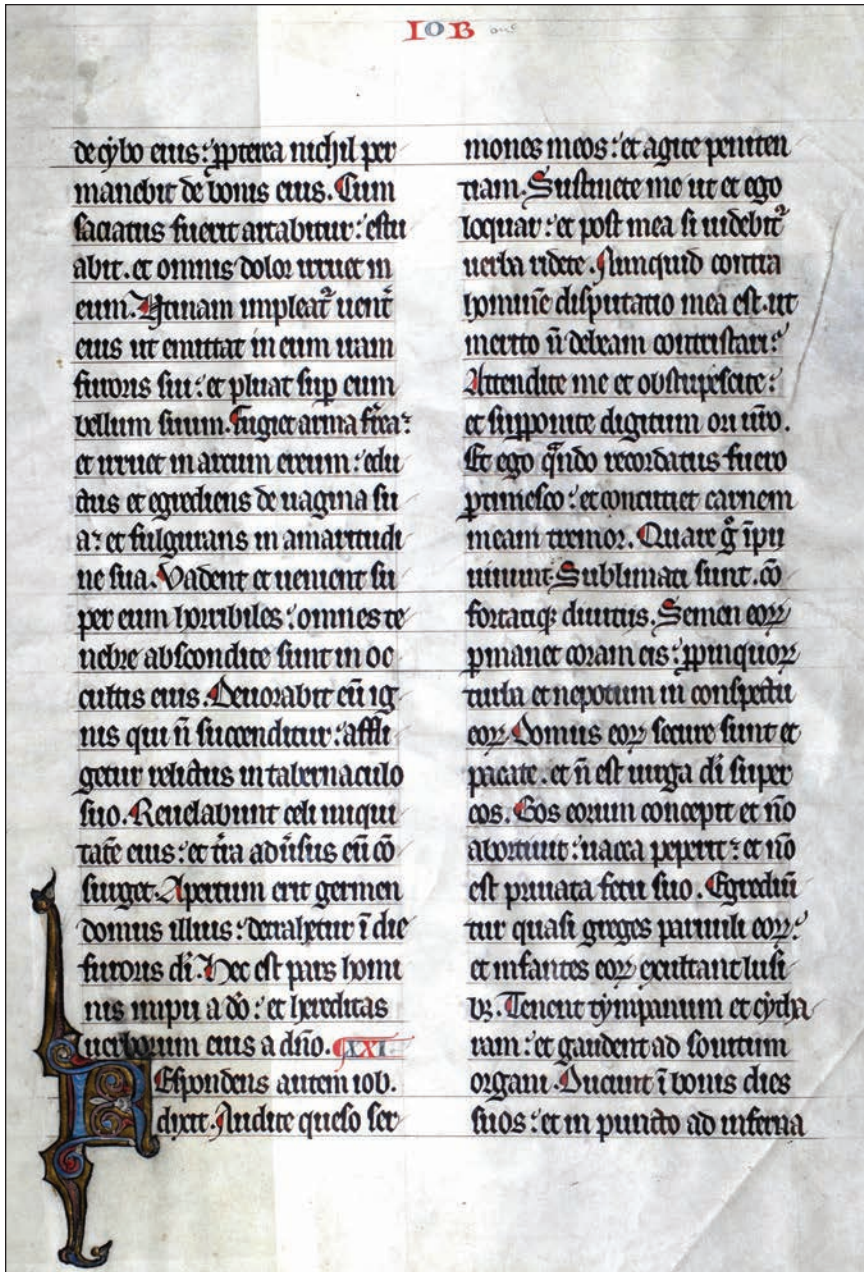 IOB
de cybo eius: ꝓpterea nichil per
manebit de bonis eius. Cum
saciatus fuerit artabitur: estu
abit. et omnis dolor irruet in
eum. Utinam impleat᷑ uent᷑
eius ut emittat in eum iram
furoris sui: et pluat sup̱ eum
bellum suum. Fugiet arma fr̄ea:
et irruet in arcum ereum: edu
ctus et egrediens de uagina su
a: et fulgurans in amaritudi
ne sua. Vadent et uenient su
per eum horribiles: omnes te
nebre abscondite sunt in oc
cultis eius. Deuorabit eū ig
nis qui n̄ succenditur: affli
getur relictus in tabernaculo
suo. Reuelabunt celi iniqui
tatē eius: et tr̄a adūsus eū cō
surget. Apertum erit germen
domus illius: detrahetur ī die
furoris dī. Hec est pars homi
nis impii a dō: et hereditas
uerborum eius a dn̄o. XXI.
REspondens autem iob.
dixit. Audite queso ser
mones meos: et agite peniten
tiam. Sustinete me ut et ego
loquar: et post mea si uidebit᷑
uerba ridete. Nunquid contra
hominē disputatio mea est. ut
merito n̄ debeam contristari:
Attendite me et obstupescite:
et supponite digitum ori ūro.
Et ego qͣndo recordatus fuero
ꝑtimesco: et concutiet carnem
meam tremor. Quare gͦ īpii
uiuunt. Sublimati sunt. cō
fortatiqꝫ diuitiis. Semen eoꝝ
ꝑmanet coram eis: ꝓpinquoꝝ
turba et nepotum in conspectu
eoꝝ. Domus eoꝝ secure sunt et
pacate. et n̄ est uirga dī super
eos. Bos eorum concepit et nō
abortiuit: uacca peperit: et nō
est priuata fetu suo. Egrediū
tur quasi greges paruuli eoꝝ:
et infantes eoꝝ exultant lusi
bꝫ. Tenent tympanum et cytha
ram: et gaudent ad sonitum
organi. Ducunt ī bonis dies
suos: et in puncto ad inferna